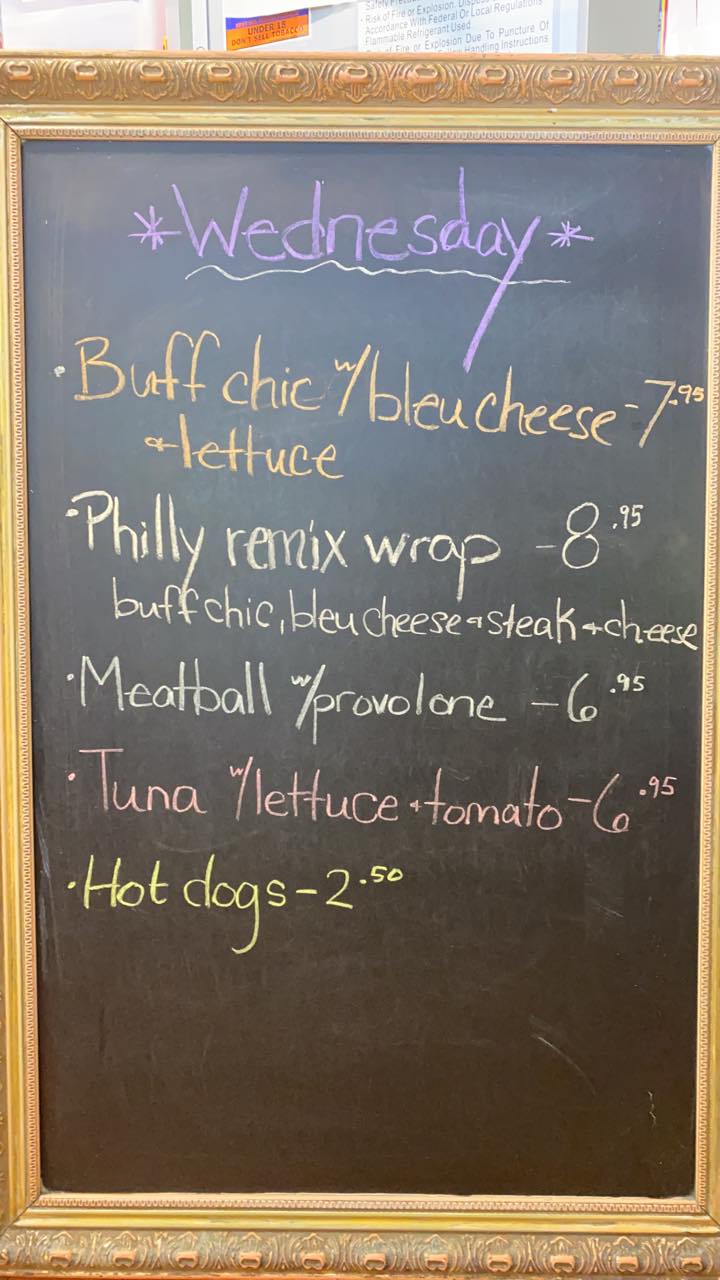 UNDER 18
DON'T SELL TOBACCO
· Risk of Fire or Explosion. Dispose
Accordance With Federal Or Local Regulations
Flammable Refrigerant Used
Fire or Explosion Due To Puncture Of
Handling Instructions
*Wednesday*
· Buff chic w/bleu cheese - 7.95
& lettuce
· Philly remix wrap - 8.95
buff chic, bleu cheese & steak + cheese
· Meatball w/provolone - 6.95
· Tuna w/lettuce & tomato - 6.95
· Hot dogs - 2.50